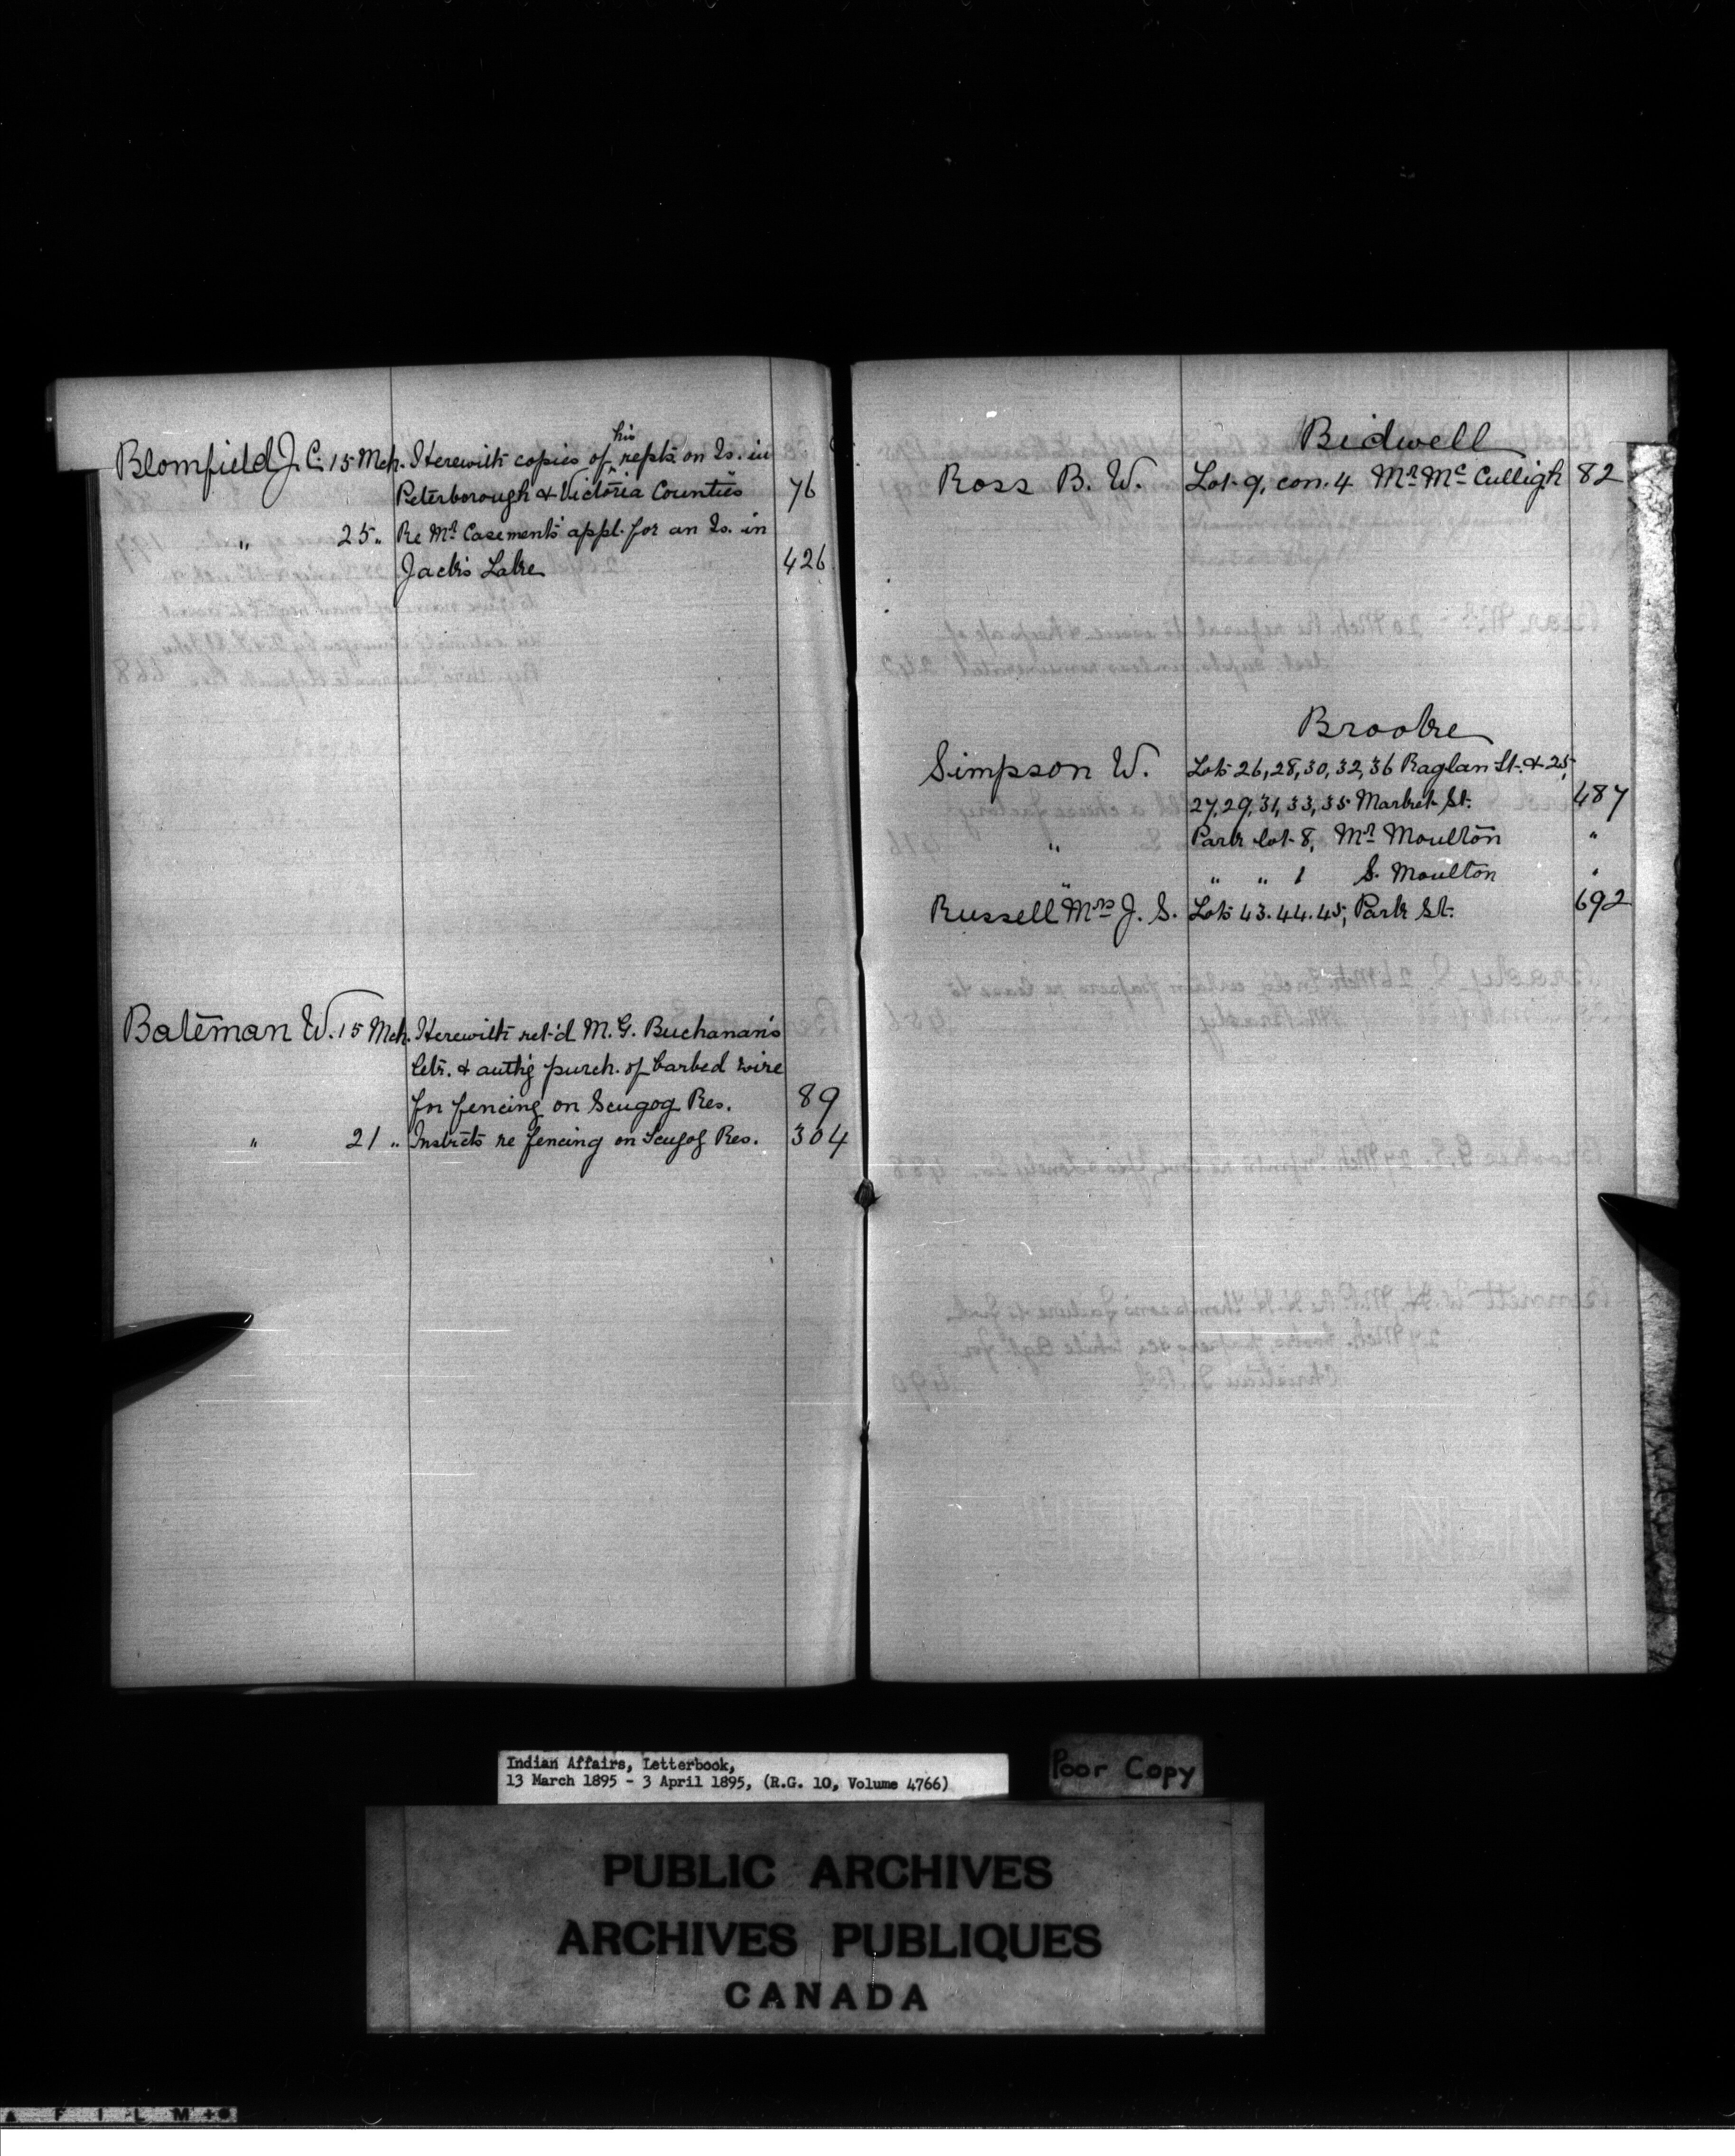 Blomfield J. C. 15 Mch. Herewith copies of his repts on Is. in
Peterborough & Victoria Counties 76
" 25 " Re Mr Casement's appl. for an Is. in
Jack's Lake 426
Bateman W. 15 Mch. Herewith ret'd M. G. Buchanan's
letr. & auth'g purch. of barbed wire
for fencing on Scugog Res. 89
" 21 " Instrcts re fencing on Scugog Res. 304
Bidwell
Ross B. W. Lot 9, con. 4 Mr McCulligh 82
Brooke
Simpson W. Lots 26, 28, 30, 32, 36 Raglan St. & 25,
27, 29, 31, 33, 35 Market St. 487
" Park lot 8, Mr Moulton "
" " " 1 S. Moulton "
Russell Mrs J. S. Lots 43. 44. 45, Park St. 692
Indian Affairs, Letterbook,
13 March 1895 - 3 April 1895, (R.G. 10, Volume 4766)
Poor Copy
PUBLIC ARCHIVES
ARCHIVES PUBLIQUES
CANADA
FILM